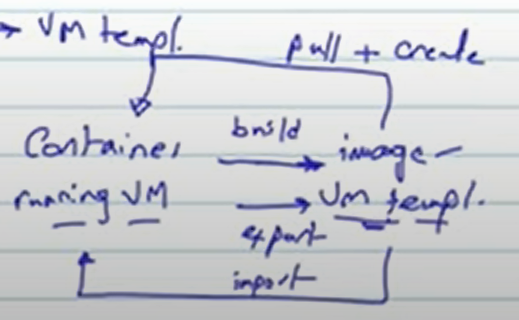 → VM templ.
pull + create
Container
build
image
running VM
VM templ.
export
import